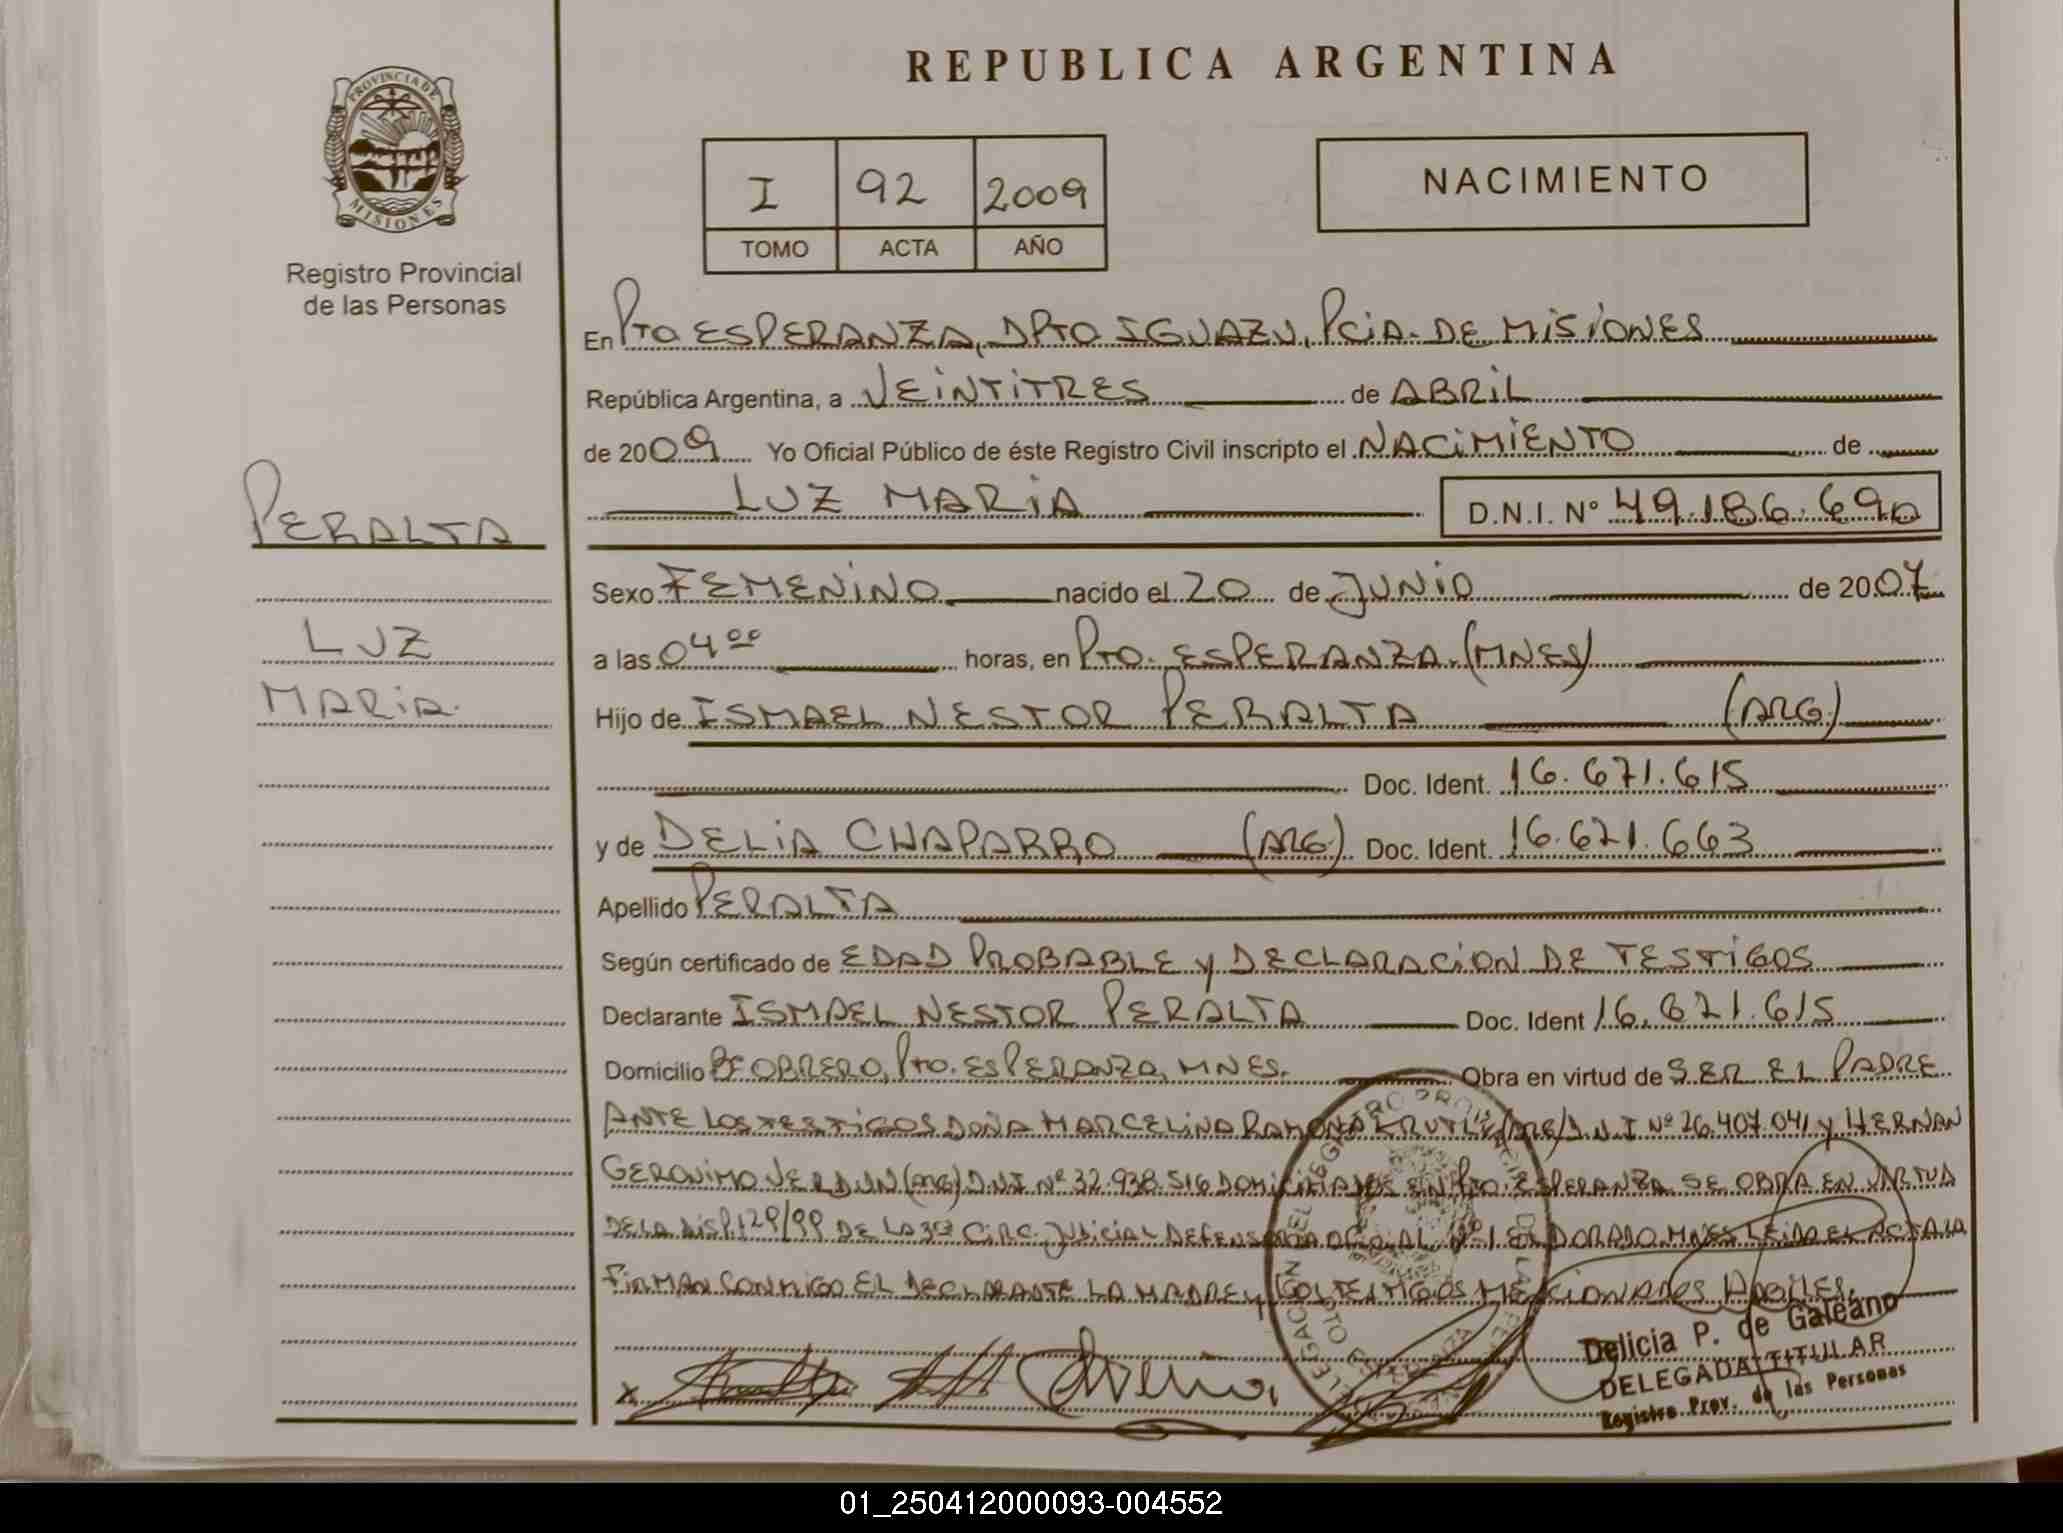 REPUBLICA ARGENTINA
PROVINCIA DE
MISIONES
Registro Provincial
de las Personas
I 92 2009
TOMO ACTA AÑO
NACIMIENTO
En Pto ESPERANZA, DPTO IGUAZU, PCIA. DE MISIONES
República Argentina, a VEINTITRES de ABRIL
de 2009 Yo Oficial Público de éste Registro Civil inscripto el NACIMIENTO de
LUZ MARIA D.N.I. Nº 49.186.690
PERALTA
LUZ
MARIA.
Sexo FEMENINO nacido el 20 de JUNIO de 2007
a las 04⁰⁰ horas, en Pto. ESPERANZA (MNES)
Hijo de ISMAEL NESTOR PERALTA (ARG)
Doc. Ident. 16.671.615
y de DELIA CHAPARRO (ARG) Doc. Ident. 16.621.663
Apellido PERALTA
Según certificado de EDAD PROBABLE Y DECLARACION DE TESTIGOS
Declarante ISMAEL NESTOR PERALTA Doc. Ident 16.621.615
Domicilio Bº OBRERO, Pto. ESPERANZA, MNES. Obra en virtud de SER EL PADRE
ANTE LOS TESTIGOS DOÑA MARCELINA RAMONA (ARG) D.N.I Nº 26.407.041 y HERNAN
GERONIMO VERDUN (ARG) D.N.I Nº 32.938.516 DOMICILIADOS EN Pto. ESPERANZA SE OBRA EN VIRTUD
DE LA DISP. 129/99 DE LA 3ª CIRC. JUDICIAL DEFENSORIA OFICIAL Nº 1 ELDORADO MNES LEIDA EL ACTA LA
FIRMAN CONMIGO EL DECLARANTE LA MADRE Y LOS TESTIGOS MENCIONADOS HABILES.
Delicia P. de Galeano
DELEGADA TITULAR
Registro Prov. de las Personas
01_250412000093-004552